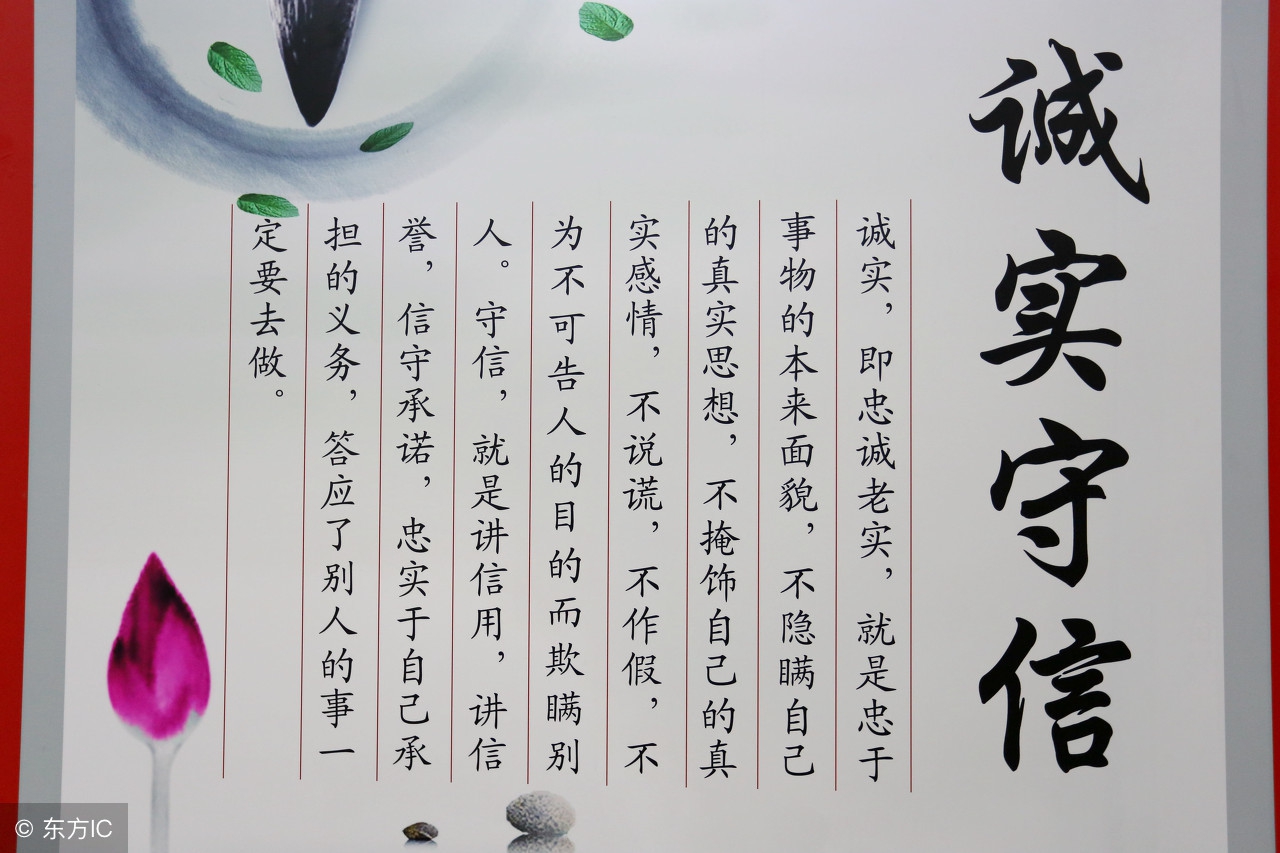 诚实守信
诚实，即忠诚老实，就是忠于
事物的本来面貌，不隐瞒自己
的真实思想，不掩饰自己的真
实感情，不说谎，不作假，不
为不可告人的目的而欺瞒别
人。守信，就是讲信用，讲信
誉，信守承诺，忠实于自己承
担的义务，答应了别人的事一
定要去做。
© 东方IC